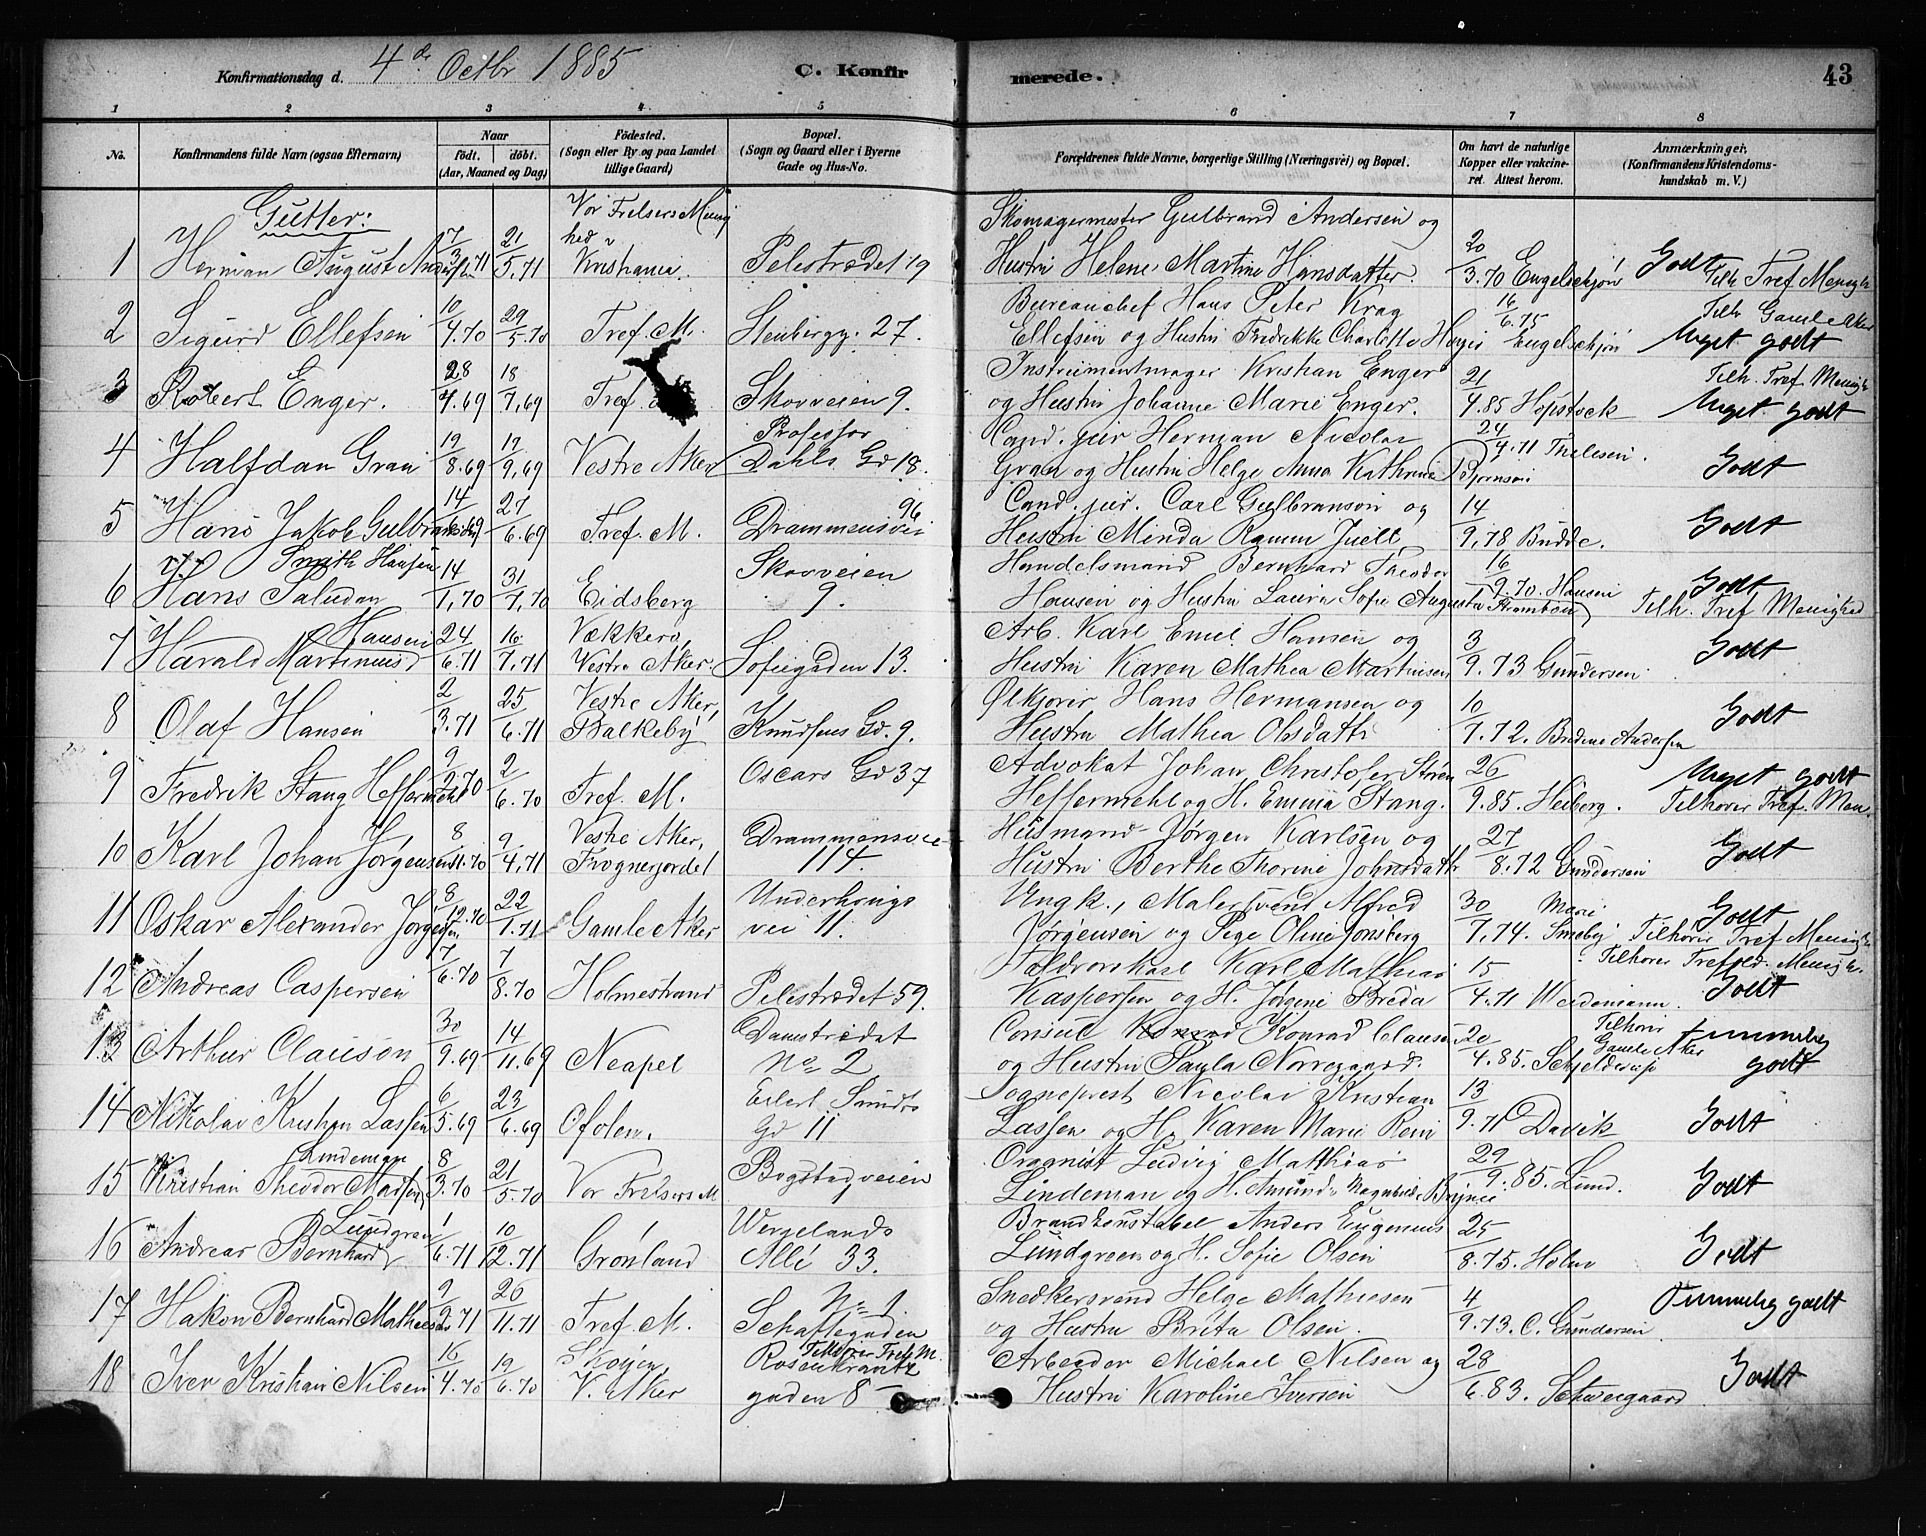 Konfirmationsdag d. 4de Octbr 1885 C. Konfirmerede. 43
1 2 3 4 5 6 7 8
No. Konfirmandens fulde Navn (ogsaa Efternavn) Naar født. døbt. (Aar, Maaned og Dag) Fødested. (Sogn eller By og paa Landet tillige Gaard) Bopæl. (Sogn og Gaard eller i Byerne Gade og Hus-No. Forældrenes fulde Navne, borgerlige Stilling (Næringsvei) og Bopæl. Om havt de naturlige Kopper eller vaccineret. Attest herom. Anmærkninger, (Konfirmandens Kristendomskundskab m. V.)
Gutter:
1 Herman August Andersen 7/3 71 21/5.71 Vor Frelsers Menighed Kristiania. Pelestrædet 19 Skomagermester Gulbrand Andersen og Hustru Helene Martine Hansdatter. 20/3.70 Engelschjøn Godt Tilh. Tref. Menigh
2 Sigurd Ellefsen 10/4.70 29/5.70 Tref. M. Stenbergg. 27. Bureauchef Hans Peter Krag Ellefsen og Hustru Fredrikke Charlotte 16/6.75 Engelschjøn Tilh Gamle Aker Meget godt
3 Robert Enger. 28/4.69 18/7.69 Tref. Skovveien 9. Instrumentmager Kristian Enger og Hustru Johanne Marie Enger. 21/4.85 Hopstock Tilh. Tref. Menigh Meget godt
4 Halfdan Gran 19/8.69 19/9.69 Vestre Aker Professor Dahls Gd 18. Cand. jur Herman Nicolai Gran og Hustru Helge Anna Kathrine Bjørnsen 24/4.71 Thelesen. Godt
5 Hans Jakob Gulbransøn 14/ 69 27/6.69 Tref. M. Drammensvei 96 Cand. jur. Carl Gulbransøn og Hustru Minda Ramm Juell 14/9.78 Budde. Godt
6 Hans Paludan Smith Hansen 14/1.70 31/7.70 Eidsberg Skovveien 9. Handelsmand Bernhard Theodor Hansen og Hustru Laura Sofie Augusta 16/9.70 Hansen Godt Tilh. Tref Menighed
7 Harald Martinius Hansen 24/6.71 16/7.71 Vækkerø, Vestre Aker. Sofiegaden 13. Arb. Karl Emil Hansen og Hustru Karen Mathea Martinsen 3/9.73 Gundersen Godt
8 Olaf Hansen 2/3.71 25/6.71 Vestre Aker, Balkeby Knudsens Gd. 9. Ølkjører Hans Hermansen og Hustru Mathea Olsdatt. 10/7.72. Andersen Godt
9 Fredrik Stang Heffermehl 9/2.70 2/6.70 Tref. M. Oscars Gd 37 Advokat Johan Christofer Heffermehl og H. Emma Stang. 26/9.85. Heiberg. Meget godt Tilhører Tref. Men.
10 Karl Johan Jørgensen 8/11.70 9/4.71 Vestre Aker, Frognerjordet Drammensvei 114. Husmand Jørgen Karlsen og Hustru Berthe Thorine Johnsdatt. 27/8.72 Gundersen Godt
11 Oskar Alexander Jørgensen 8/12.70 22/1.71 Gamle Aker Underhaugsvei 11. Ungk., Malersvend Alfred Jørgensen og Pige Oline Jonsberg 30/7.74. Marie Smeby Godt Tilhører Tref. Menigh
12 Andreas Caspersen 7/6.70 7/8.70 Holmestrand Pelestrædet 59. Karl Mathias Kaspersen og H. Jørgine Breda 15/4.71 Weidemann. Tilhører Trefold. Menigh. Godt
13 Arthur Clauson 30/9.69 14/11.69 Neapel Damstrædet No 2 Consul Konrad Clauson og Hustru Paula Norregaard. 20/4.85. Schjelderup Tilhører Gamle Aker temmelig godt
14 Nikolai Kristian Lassen 6/5.69 23/6.69 Ofoten. Eilert Sundts Gd 11 Sogneprest Nicolai Kristian Lassen og H. Karen Marie 13/9.71 Davik Godt
15 Kristian Theodor Madsen Lindeman 8/3.70 21/5.70 Vor Frelsers M Bogstadveien Organist Ludvig Mathias Lindeman og H. 29/9.85. Lund. Godt
16 Andreas Bernhard Lundgren 1/6.71 10/12.71 Grønland Wergelands Allé 33. Brandkonstabel Anders Eugenius Lundgreen og H. Sofie Olsen 25/8.75. Holm Godt
17 Hakon Bernhard Mathiesen 9/9.71 26/11.71 Tref. M. No 1. Schaftegaden Tilhører Tref. M. Snedkersvend Helge Mathiesen og Hustru Brita Olsen. 4/9.73. C. Gundersen. Temmelig godt
18 Iver Kristian Nilsen 16/4.70 19/6.70 Skøyen, V. Aker Rosenkrantzgaden 8 Arbeider Michael Nilsen og Hustru Karoline Iversen 28/6.83. Schweigaard Godt